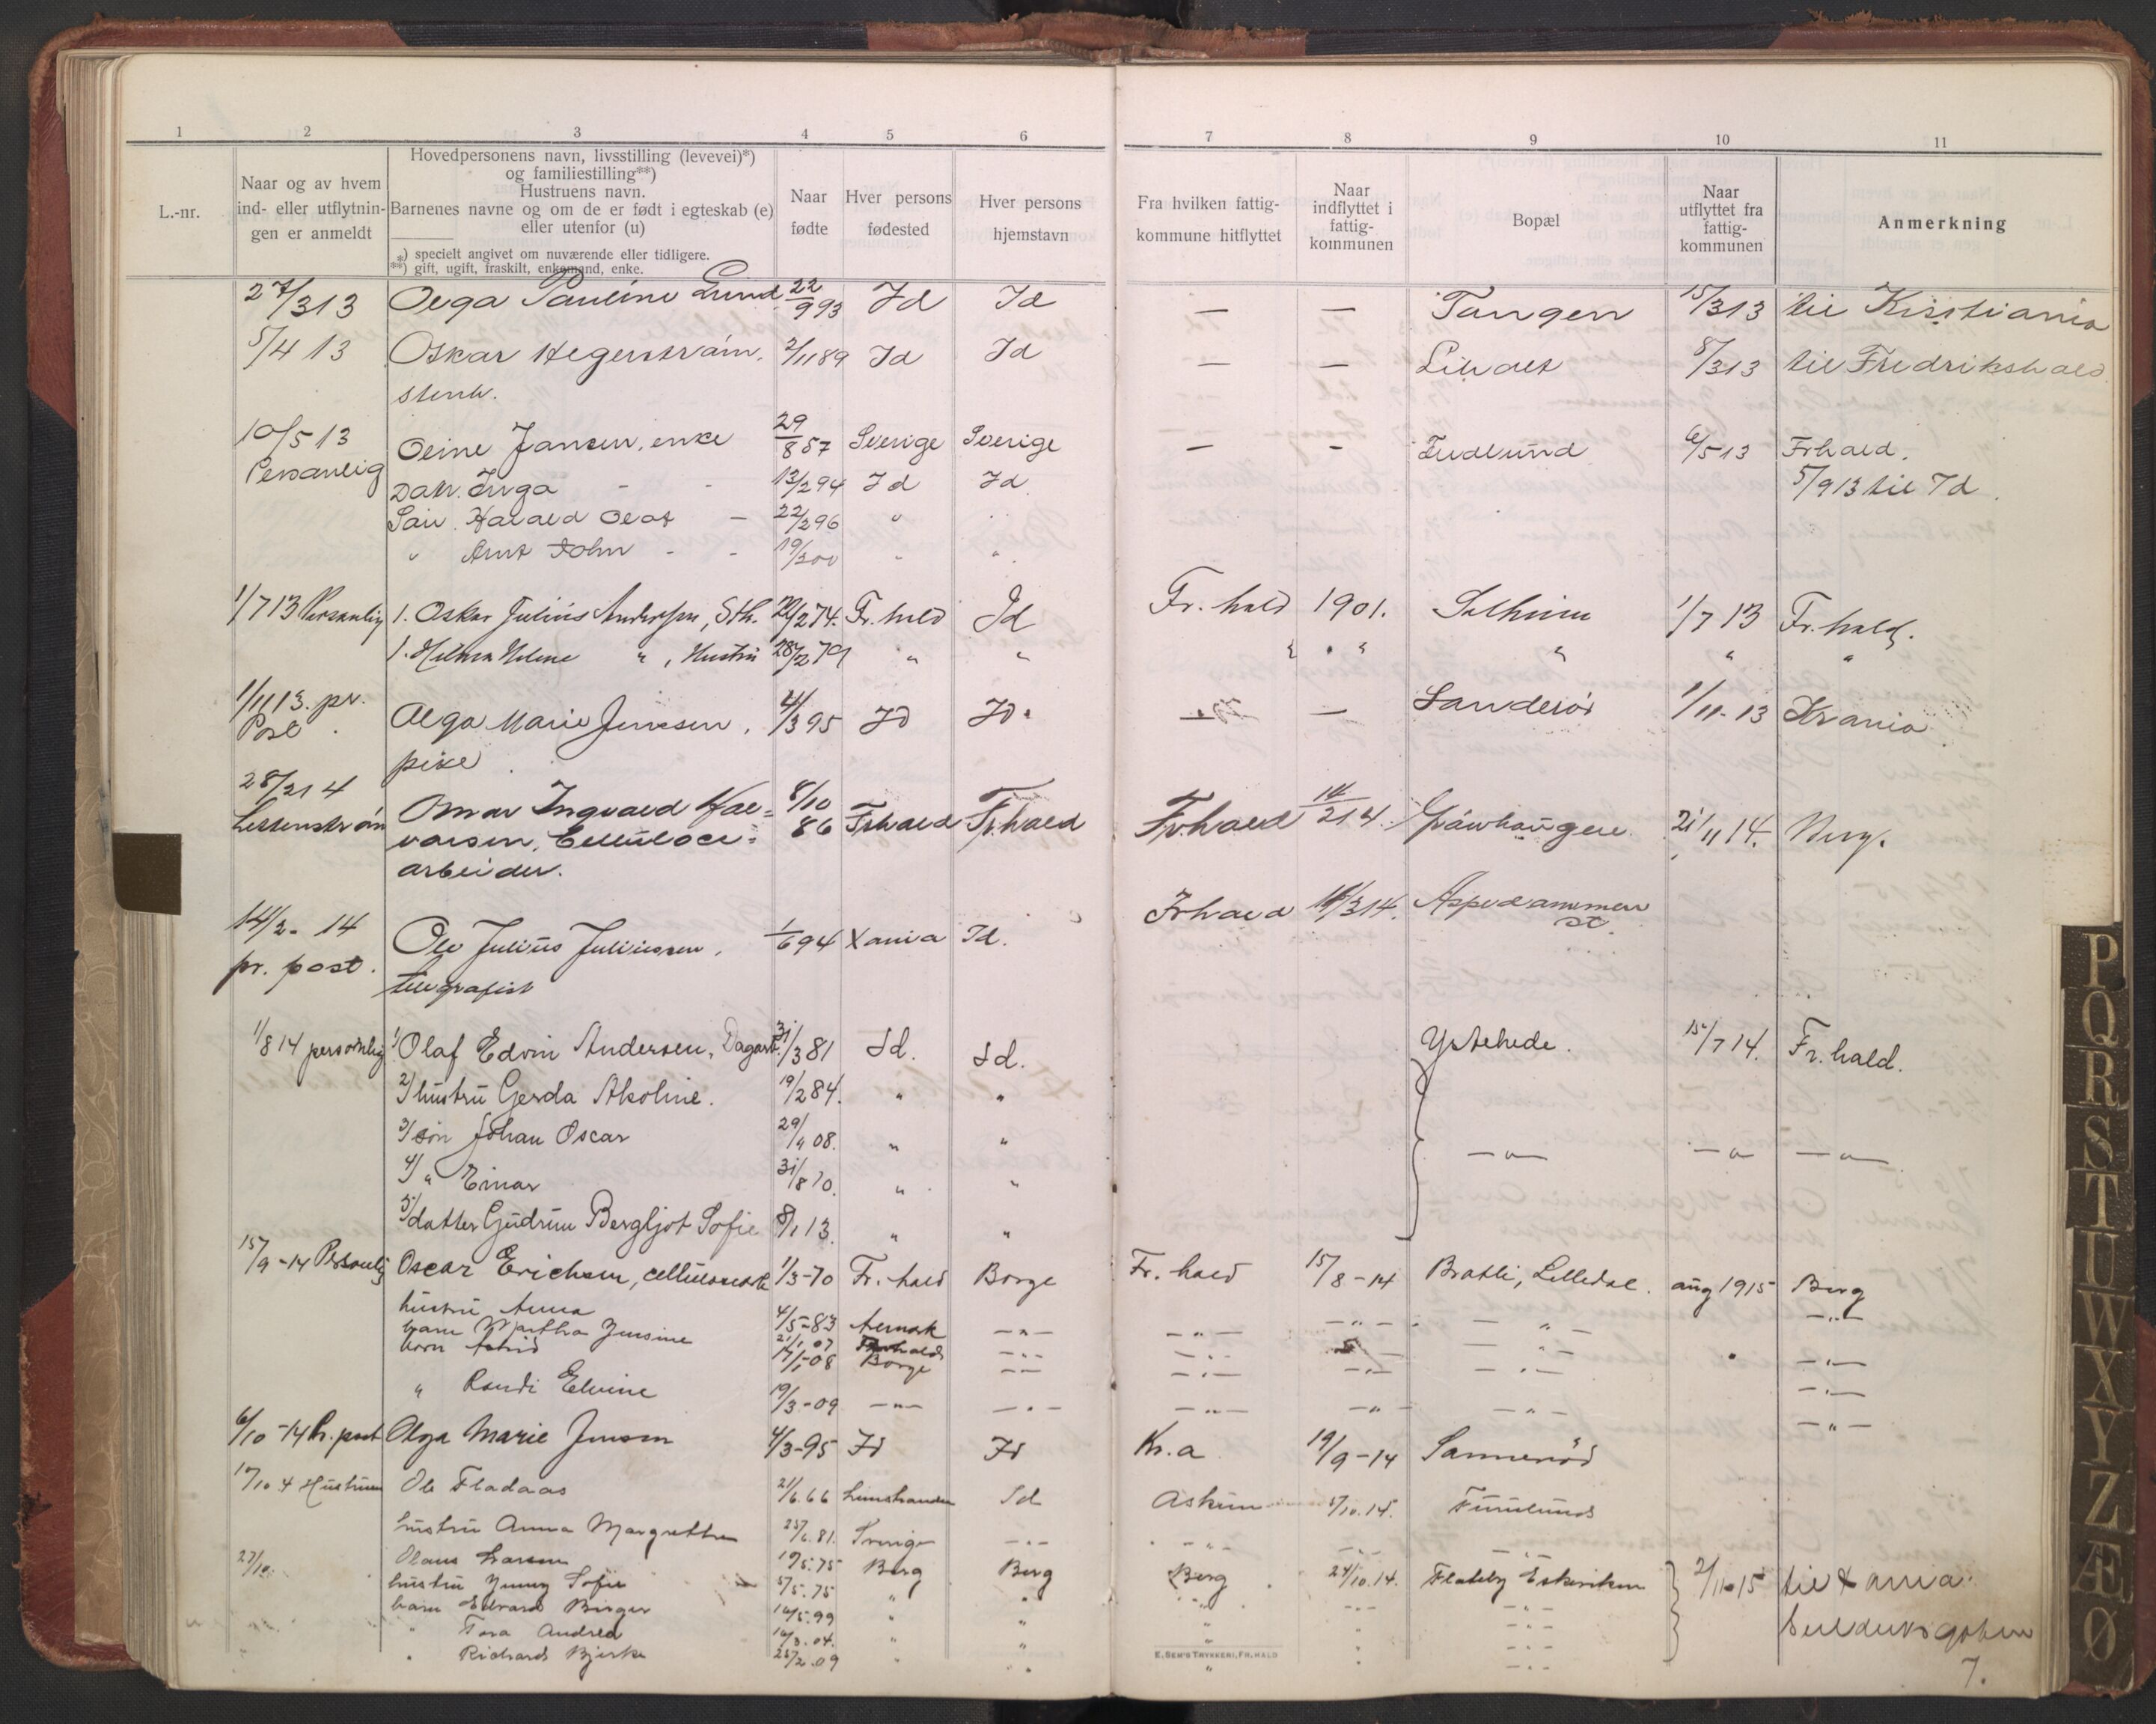 1 2 3 4 5 6 7 8 9 10 11
L.-nr.
Naar og av hvem
ind- eller utflytnin-
gen er anmeldt
Hovedpersonens navn, livsstilling (levevei)*)
og familiestilling**)
Hustruens navn.
Barnenes navne og om de er født i egteskab (e)
eller utenfor (u)
*) specielt angivet om nuværende eller tidligere.
**) gift, ugift, fraskilt, enkemand, enke.
Naar
fødte
Hver persons
fødested
Hver persons
hjemstavn
Fra hvilken fattig-
kommune hitflyttet
Naar
indflyttet i
fattig-
kommunen
Bopæl
Naar
utflyttet fra
fattig-
kommunen
Anmerkning
27/3 13 Olga Pauline Lund 22/9 93 Id Id — — Tangen 15/3 13 til Kristiania
5/4 13 Oskar Hegerstrøm, 2/11 89 Id Id — — Liholt 8/3 13 til Fredrikshald
stenh.
10/5 13 Oline Jansen, enke 29/8 57 Sverige Sverige — - 6/5 13 Frhald.
Personlig Datr. Inga - - 13/2 94 Id Id 5/9 13 til Id.
Søn Harald Olaf — 22/2 96 "
" Arnt John - - 19/3 00 " "
1/7 13 Personlig 1. Oskar Julius Anderssen, Sth. 2 74. Fr.hald Id Fr. hald 1901. Solheim 1/7 13 Fr. hald.
1. Helene " , Hustru 28/2 79 " " " " " " "
1/11 13. pr. Olga Marie Jenssen, 4/3 95 Id Id. — Sanderød 1/11-13 Krania
Post pike
28/2 14 Omar Ingvald Hal= 8/10 86 Frhald Fr.hald Fr.hald 14/2 14. 21/11 14. Berg.
varsen, Cellulose=
arbeider.
14/3 - 14 Ole Julius Juliussen, 1/6 94 Xania Id. Frhald 14/3 14. Aspedammen
st.
pr. post. telegrafist
1/8 14 personlig 1/ Olaf Edvin Andersen, Dagarb. 31/3 81 Id. Id. Ystehede. 15/7 14. Fr. hald.
2/ hustru Gerda Akoline. 19/2 84. " "
3/ søn Johan Oscar 29/4 08. " " —"— —"— —"—
4/ " Einar 31/8 10. " "
5/ datter Gudrun Bergljot Sofie 8/1 13. " "
15/9 -14 Personlig Oscar Erichsen, cellulosearb. 1/3-70 Fr. hald Borge Fr. hald 15/8-14 Bratli, Lilledal. aug 1915 Berg
hustru Anna 4/5-83 Aremark —"— —"— —"— —"— —"—
barn Martha Jensine 21/1 07 Frhald —"— —"— —"— —"—
barn Astrid 17/1-08 Borge —"— —"— —"— —"— —"—
" Randi Elvine 19/3-09 —"— —"— —"— —"— —"— —"—
6/10 -14 Pr. post Olga Marie Jensen 4/3-95 Id Id Kr.a 19/9-14 Sannerød
17/10 4 Hustruen Ole Fladaas 21/6.66 Id Askim 5/10.14. Furulund
hustru Anna Margrethe 25/6.81. Sverige —"— —"— —"— —"—
27/10. Olaus Larsen 19/5.75 Berg Berg Berg 24/10.14. Flateby 2/11 15 til Xania.
hustru Jenny Sofie 5/5.75 " " " —"— —"—
barn Edvard Birger 14/5.99 " " " " —"—
" Tora Andrea 16/3.04. " " " " —"—
" Richard Bjerke 25/2.09 " " " " —"— 7.
E. SEM'S TRYKKERI, FR.HALD
P
Q
R
S
T
U
W
X
Y
Z
Æ
Ø